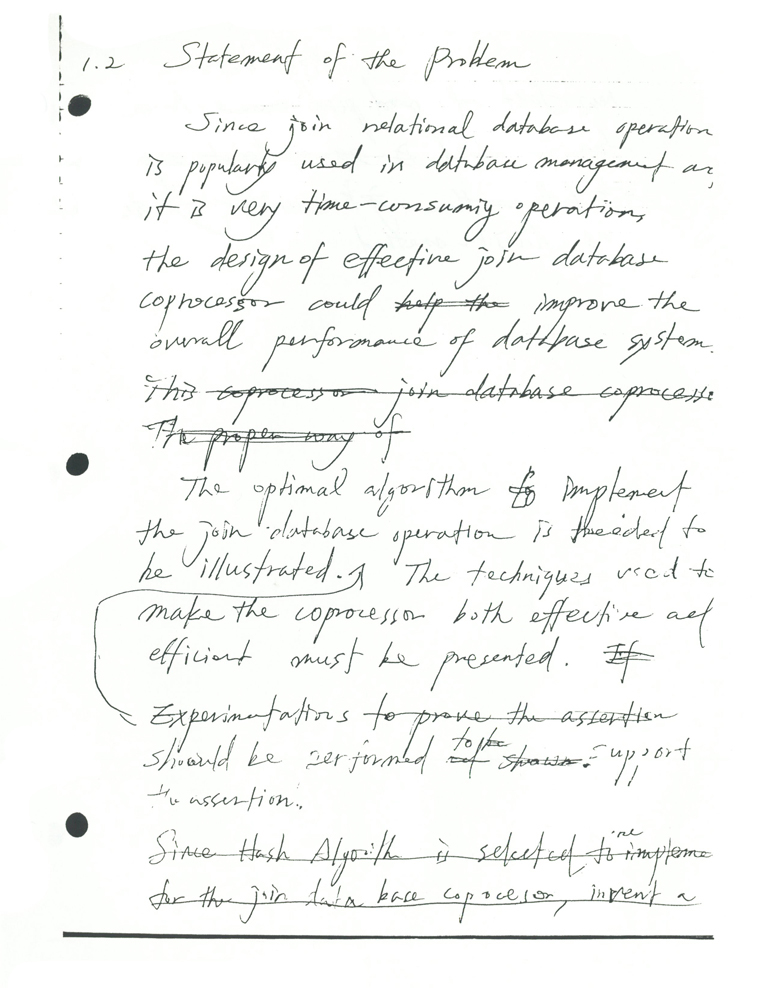 1.2 Statement of the Problem
Since join relational database operation
is popularly used in database management
it is very time-consumiy operation,
the design of effective join database
coprocessor could help the improve the
overall performance of database system.
This coprocessor join database
The proper way of
The optimal algorithm to implement
the join database operation is needed to
be illustrated. The techniques used to
make the coprocessor both effective
efficient must be presented. If
Experimentations to prove the assertion
should be performed to shown support
the assertion.
Since Hash is selected to
for the join data base coprocesor, invent a